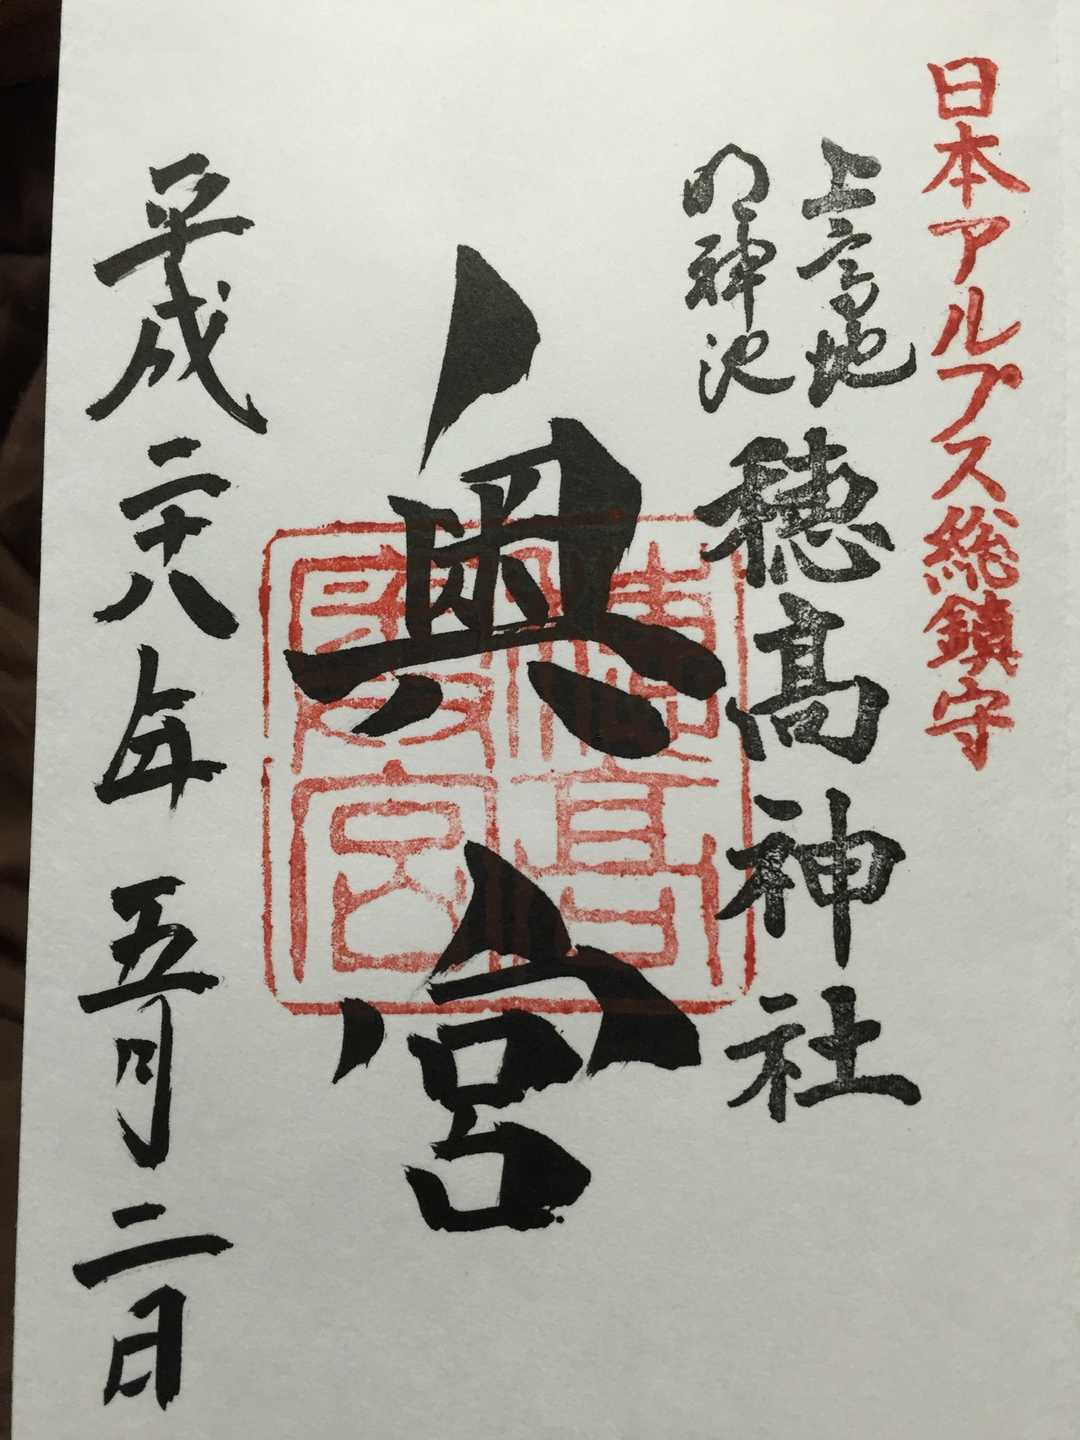 日本アルプス総鎮守
上高地
明神池
穂髙神社
奥宮
穂髙
奥宮
平成二十八年五月二日